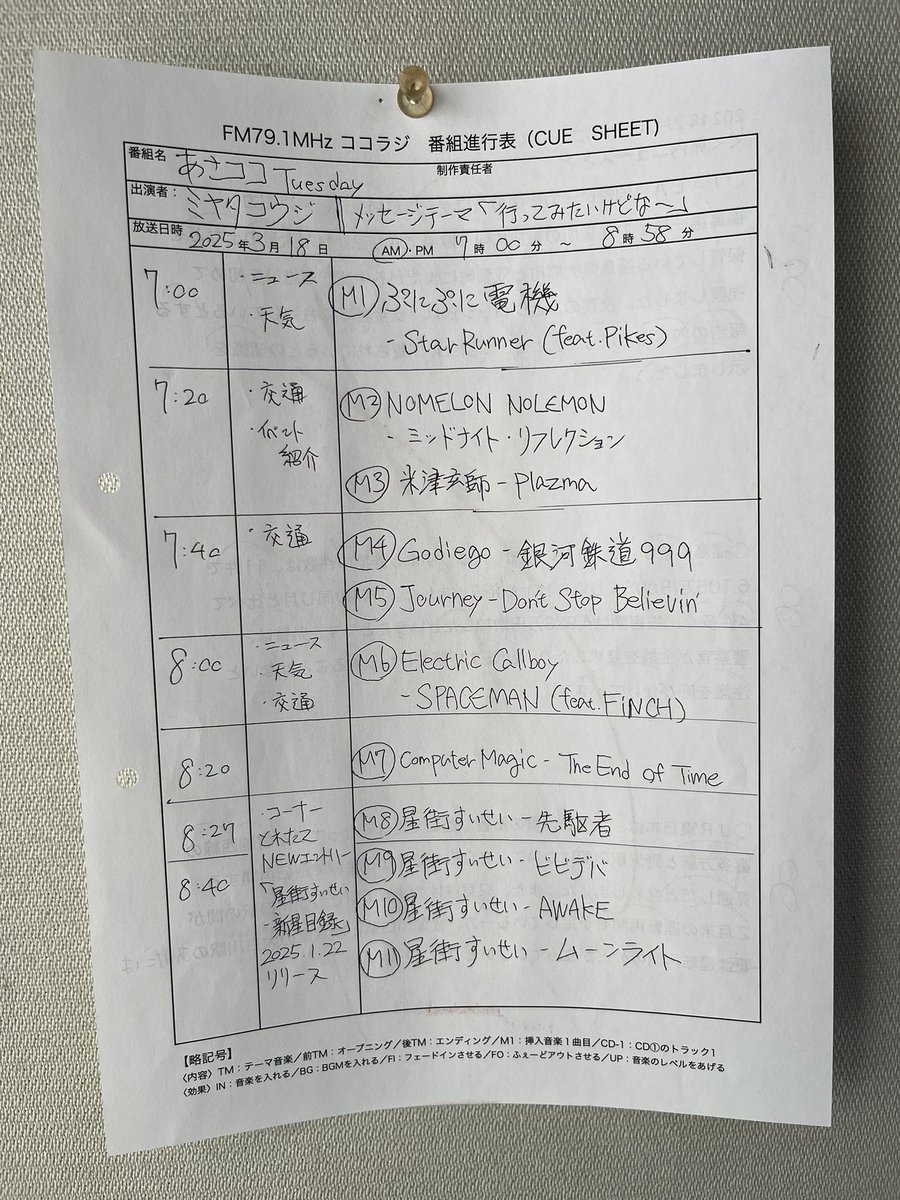 FM79.1MHz ココラジ 番組進行表（CUE SHEET）
番組名 あさココ Tuesday 制作責任者
出演者： ミヤタコウジ メッセージテーマ「行ってみたいけどな〜」
放送日時 2025年3月18日 AM・PM 7時00分 〜 8時58分
7:00 ・ニュース M1 ぷにぷに電機
・天気 - Star Runner (feat. Pikes)
7:20 ・交通 M2 NOMELON NOLEMON
・イベント - ミッドナイト・リフレクション
紹介 M3 米津玄師 - Plazma
7:40 ・交通 M4 Godiego - 銀河鉄道999
M5 Journey - Don't Stop Believin'
8:00 ・ニュース M6 Electric Callboy
・天気 - SPACEMAN (feat. FiNCH)
・交通
8:20 M7 Computer Magic - The End of Time
8:27 ・コーナー M8 星街すいせい - 先駆者
とれたス
NEWエントリー M9 星街すいせい - ビビデバ
8:40 「星街すいせい M10 星街すいせい - AWAKE
- 新星目録」
2025.1.22 M11 星街すいせい - ムーンライト
リリース
【略記号】
〈内容〉TM：テーマ音楽／前TM：オープニング／後TM：エンディング／M1：挿入音楽1曲目／CD-1：CD①のトラック1
〈効果〉IN：音楽を入れる／BG：BGMを入れる／FI：フェードインさせる／FO：ふぇーどアウトさせる／UP：音楽のレベルをあげる